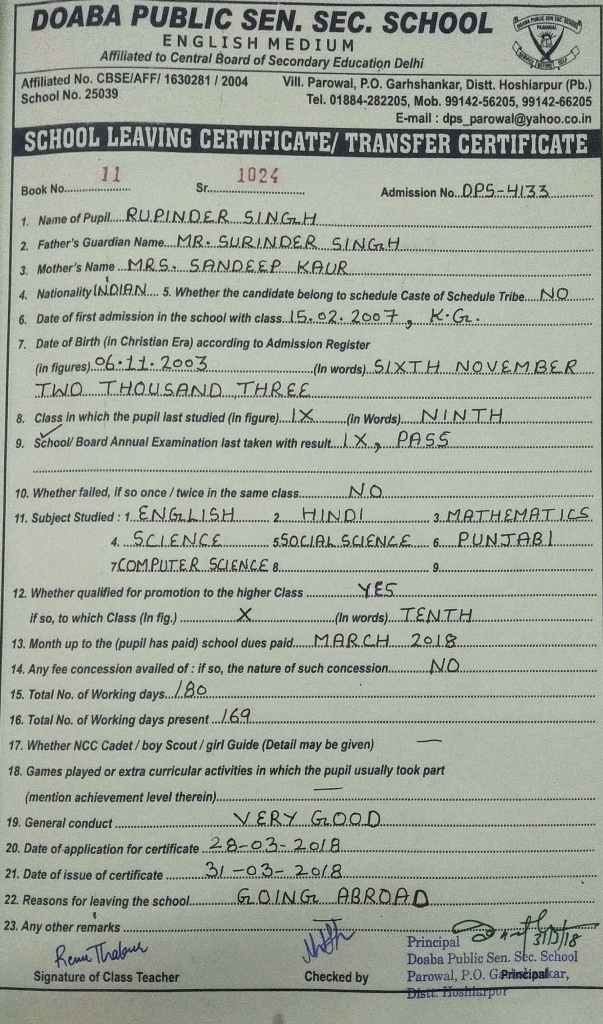 DOABA PUBLIC SEN. SEC. SCHOOL
ENGLISH MEDIUM
Affiliated to Central Board of Secondary Education Delhi
Affiliated No. CBSE/AFF/ 1630281 / 2004
School No. 25039
Vill. Parowal, P.O. Garhshankar, Distt. Hoshiarpur (Pb.)
Tel. 01884-282205, Mob. 99142-56205, 99142-66205
E-mail : dps_parowal@yahoo.co.in
SCHOOL LEAVING CERTIFICATE/ TRANSFER CERTIFICATE
Book No. 11 Sr. 1024 Admission No. DPS-4133
1. Name of Pupil RUPINDER SINGH
2. Father's Guardian Name MR. SURINDER SINGH
3. Mother's Name MRS. SANDEEP KAUR
4. Nationality INDIAN 5. Whether the candidate belong to schedule Caste of Schedule Tribe NO
6. Date of first admission in the school with class 15.02.2007, K.G.
7. Date of Birth (in Christian Era) according to Admission Register
(in figures) 06.11.2003 (In words) SIXTH NOVEMBER
TWO THOUSAND THREE
8. Class in which the pupil last studied (in figure) IX (in Words) NINTH
9. School/ Board Annual Examination last taken with result IX, PASS
10. Whether failed, if so once / twice in the same class NO
11. Subject Studied : 1. ENGLISH 2. HINDI 3. MATHEMATICS
4. SCIENCE 5. SOCIAL SCIENCE 6. PUNJABI
7. COMPUTER SCIENCE 8. 9.
12. Whether qualified for promotion to the higher Class YES
if so, to which Class (In fig.) X (In words) TENTH
13. Month up to the (pupil has paid) school dues paid MARCH 2018
14. Any fee concession availed of : if so, the nature of such concession NO
15. Total No. of Working days 180
16. Total No. of Working days present 169
17. Whether NCC Cadet / boy Scout / girl Guide (Detail may be given) —
18. Games played or extra curricular activities in which the pupil usually took part
(mention achievement level therein) —
19. General conduct VERY GOOD
20. Date of application for certificate 28-03-2018
21. Date of issue of certificate 31-03-2018
22. Reasons for leaving the school GOING ABROAD
23. Any other remarks
31/3/18
Signature of Class Teacher
Checked by
Principal
Principal
Doaba Public Sen. Sec. School
Parowal, P.O. Garhshankar,
Distt. Hoshiarpur